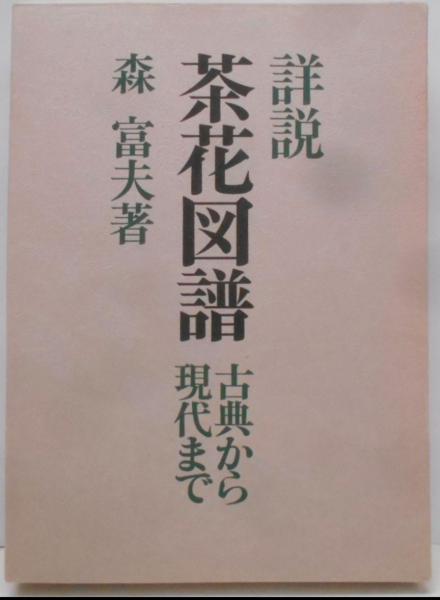 詳説
茶花図譜
古典から
現代まで
森 富夫著